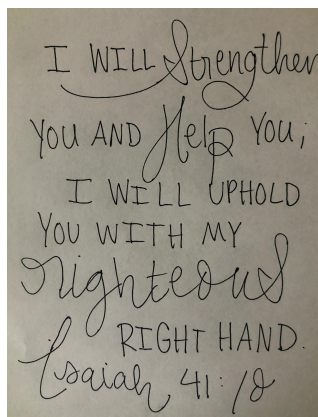 I WILL Strengthen
YOU AND Help YOU;
I WILL UPHOLD
YOU WITH MY
righteous
RIGHT HAND.
Isaiah 41:10